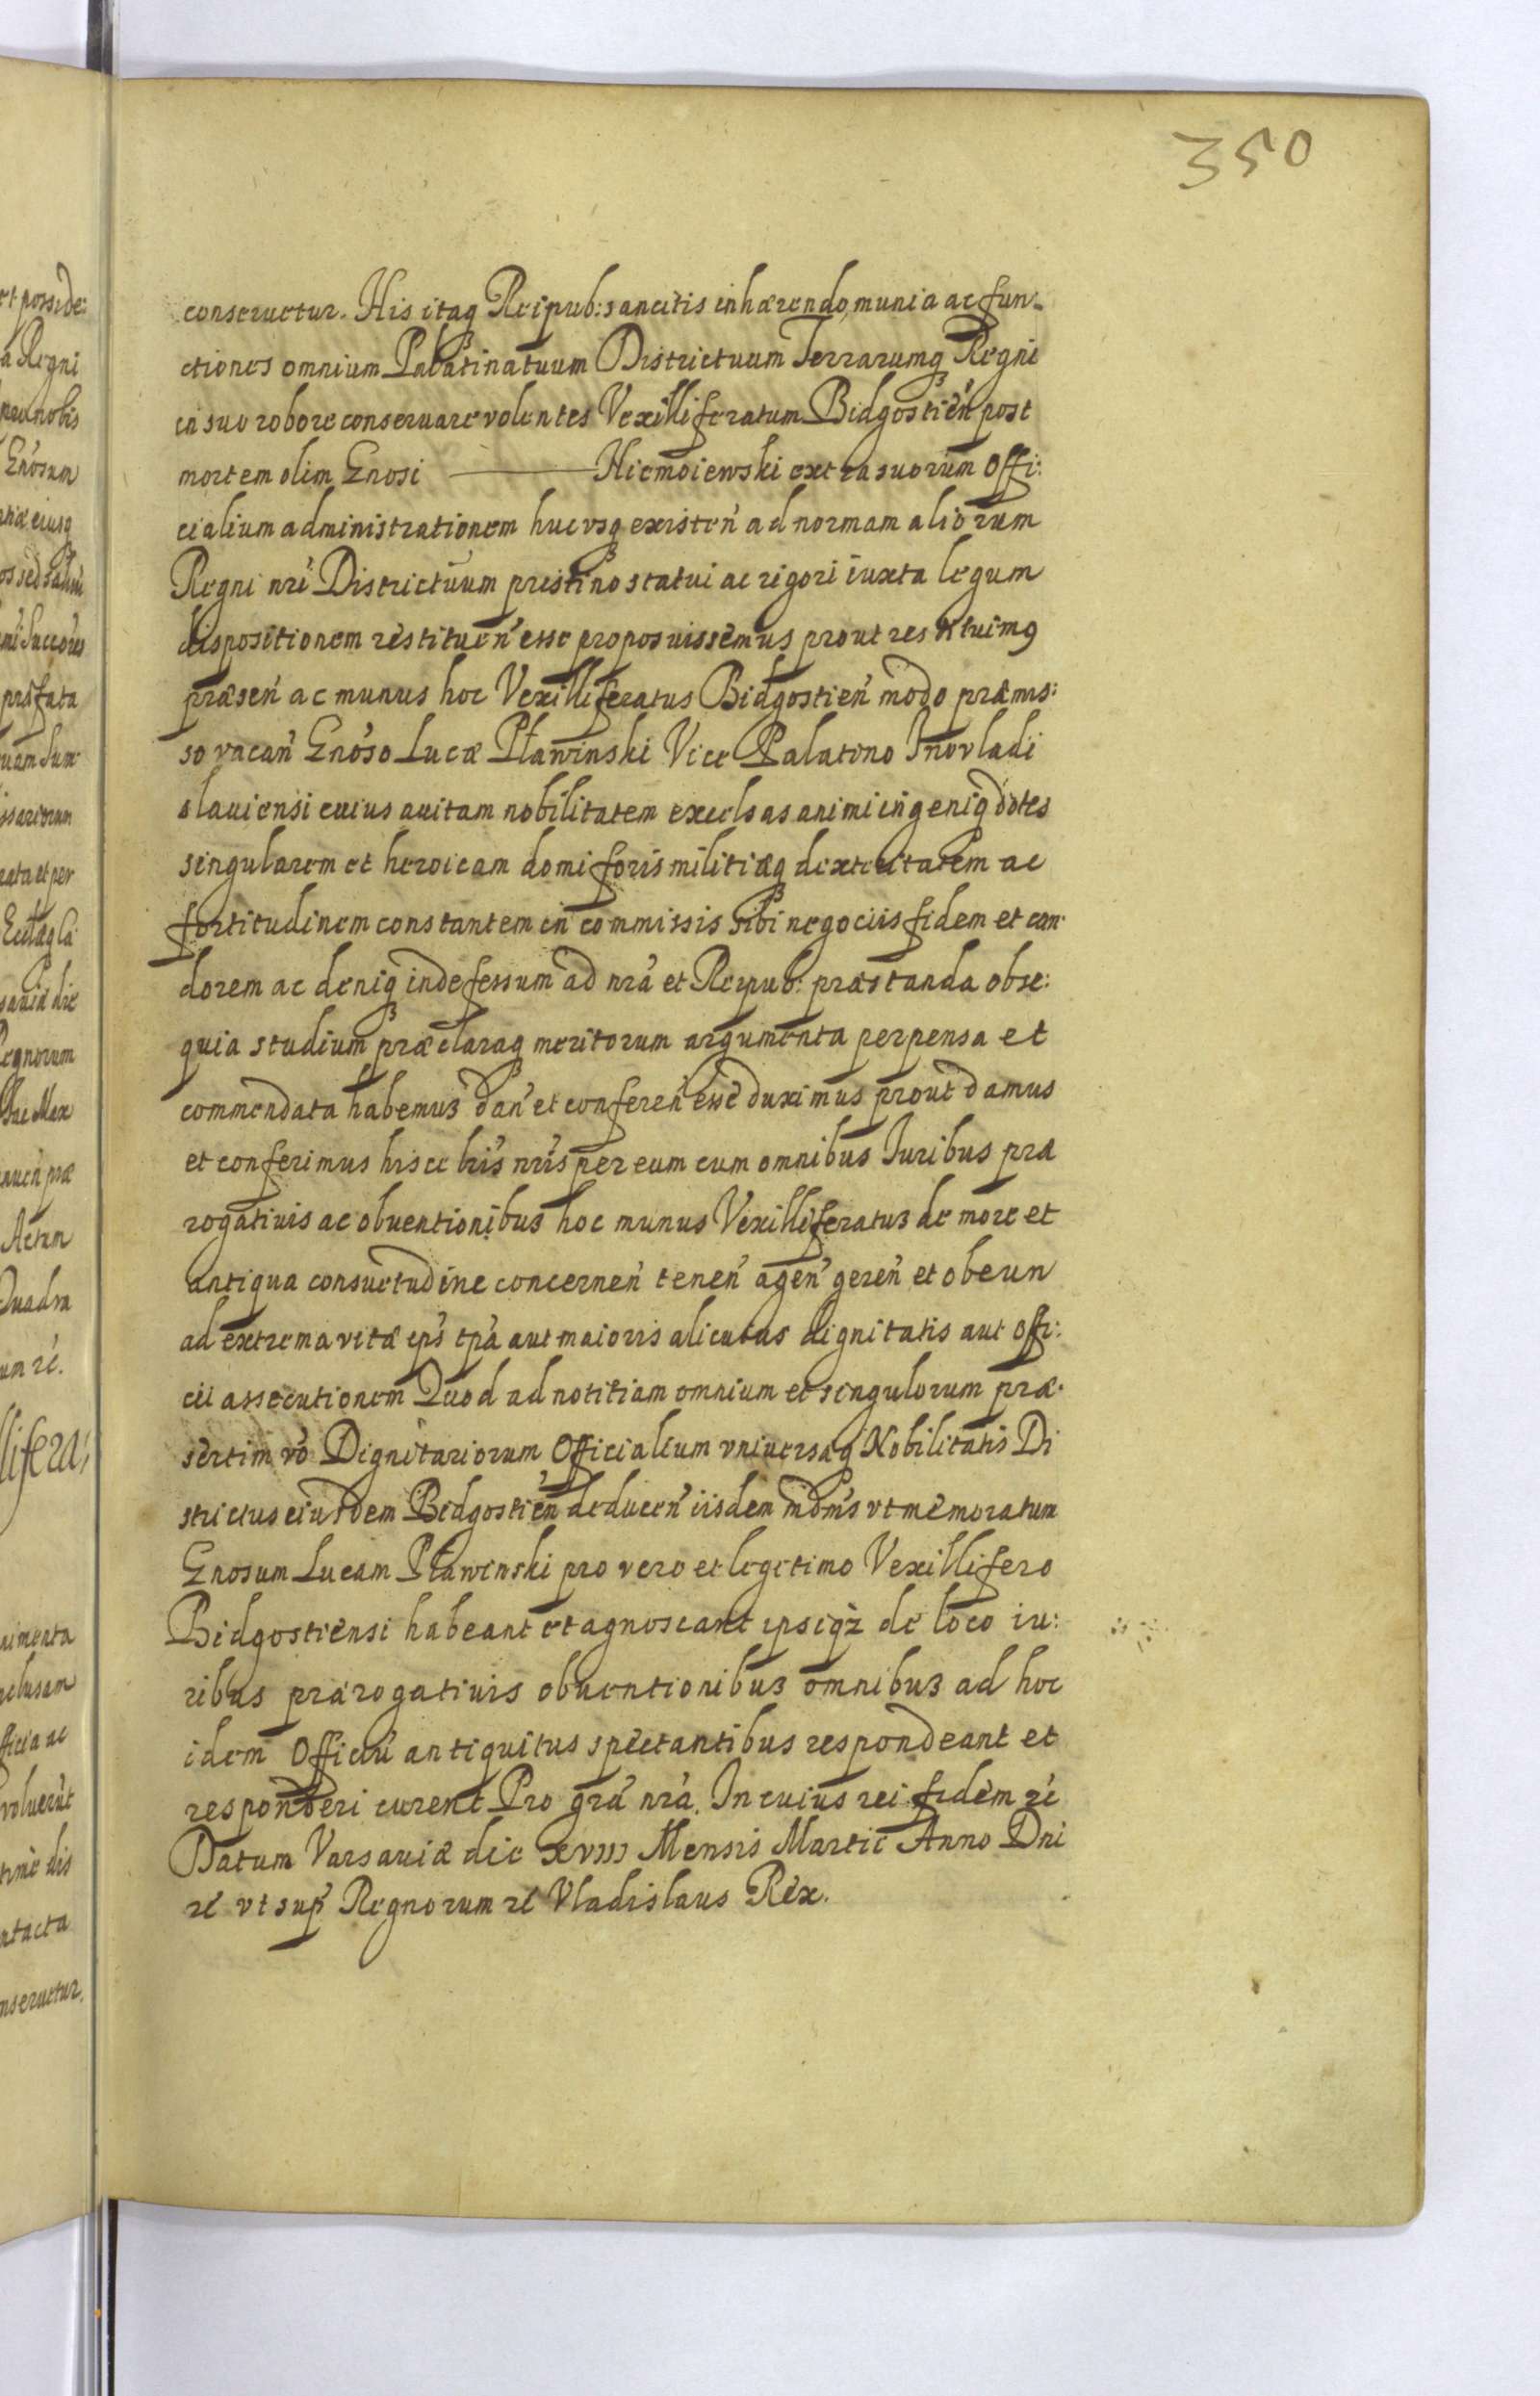 350
conseruetur. His itaq Reipub: sancitis inhærendo munia ac fun-
ctiones omnium Palatinatuum Districtuum Terrarumq Regni
in suo robore conseruare volentes Vexilliferatum Bidgostien post
mortem olim Gnosi ——— Niemoiewski extra suorum Offi:
cialium administrationem hucvsq existen ad normam aliorum
Regni nri Districtuum pristino statui ac rigori iuxta legum
dispositionem restituen esse proposuissemus prout restituimq
præsen ac munus hoc Vexilliferatus Bidgostien modo præmis:
so vacan Gnoso Lucæ Pławinski Vice Palatino Jnovladi
slauiensi cuius auitam nobilitatem excelsas animi ingeniq dotes
singularem et heroicam domi foris militiæq dexteritatem ac
fortitudinem constantem in commissis sibi negociis fidem et can-
dorem ac deniq indefessum ad nra et Reipub: præstanda obse:
quia studium præclaraq meritorum argumenta perpensa et
commendata habemus dan et conferen esse duximus prout damus
et conferimus hisce lris nris per eum cum omnibus Iuribus præ
rogatiuis ac obuentionibus hoc munus Vexilliferatus de more et
antiqua consuetudine concernen tenen agen geren et obeun
ad extrema vitæ ips tpa aut maioris alicuius dignitatis aut offi:
cii assecutionem Quod ad notitiam omnium et singulorum præ-
sertim vo Dignitariorum Officialium vniuersaq Nobilitatis Di
strictus eiusdem Bidgostien deducen iisdem mdms vt memoratum
Gnosum Lucam Pławinski pro vero et legitimo Vexillifero
Bidgostiensi habeant et agnoscant ipsiqz de loco iu:
ribus prærogatiuis obuentionibus omnibus ad hoc
idem Officiu antiquitus spectantibus respondeant et
responderi curent Pro gra nra. In cuius rei fidem rc
Datum Varsauiæ die xviii Mensis Martii Anno Dni
rc vt sup Regnorum rc Vladislaus Rex.